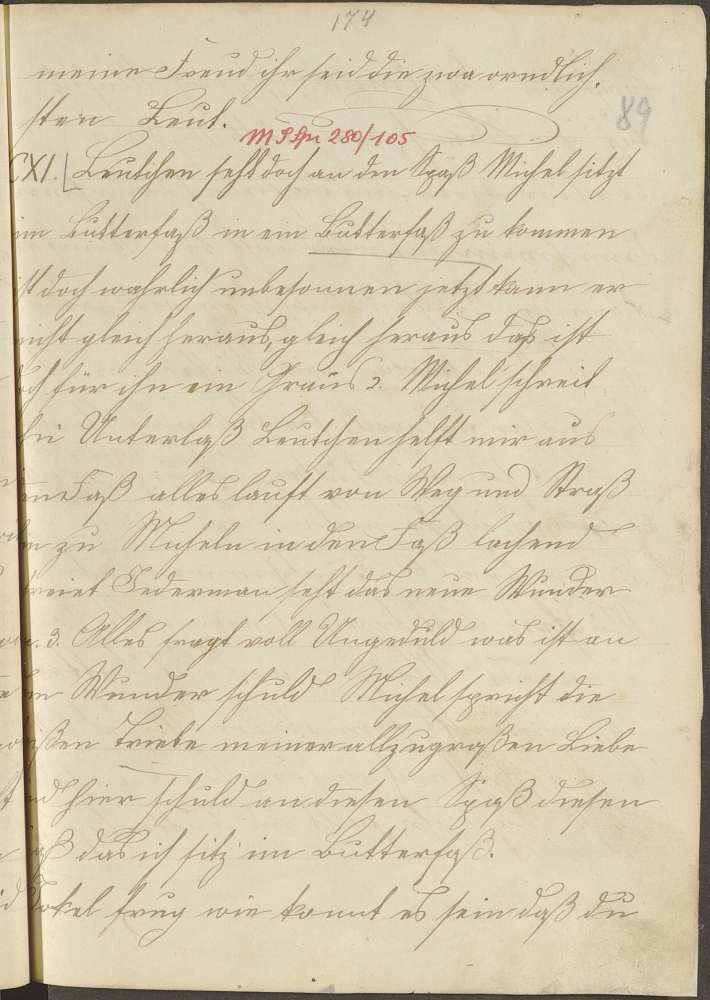 174
meine Freud ihr seid die zwa orndlich,
sten Leut.
89
M S Spr 280/105
CXI. Leutchen seht doch an den Spaß Michel sitzt
im Butterfaß in ein Butterfaß zu kommen
ist doch wahrlich unbesonnen jetzt kann er
nicht gleich heraus, gleich heraus das ist
doch für ihn ein Graus 2. Michel schreit
Unterlaß Leutchen helft mir aus
Faß alles lauft von Weg und Straß
zu Micheln in den Faß lachend
Jederman seht das neue Wunder
3. Alles fragt voll Ungeduld was ist an
Wunder schuld Michel spricht die
Triebe meiner allzugroßen Liebe
hier schuld an diesen Spaß diesen
das ich sitz im Butterfaß.
frug wie konnt es sein daß du